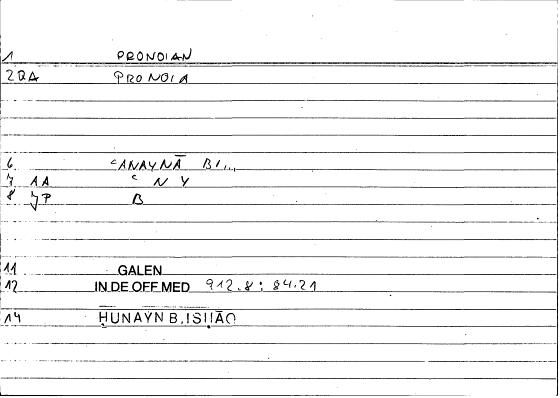 1 PRONOIAN
2QA PRONOIA
6 ʿANAYNĀ BI...
7 AA ʿNY
8 JP B
11 GALEN
12 IN.DE.OFF.MED 912.8: 84.21
14 ḤUNAYN B.ISḤĀQ